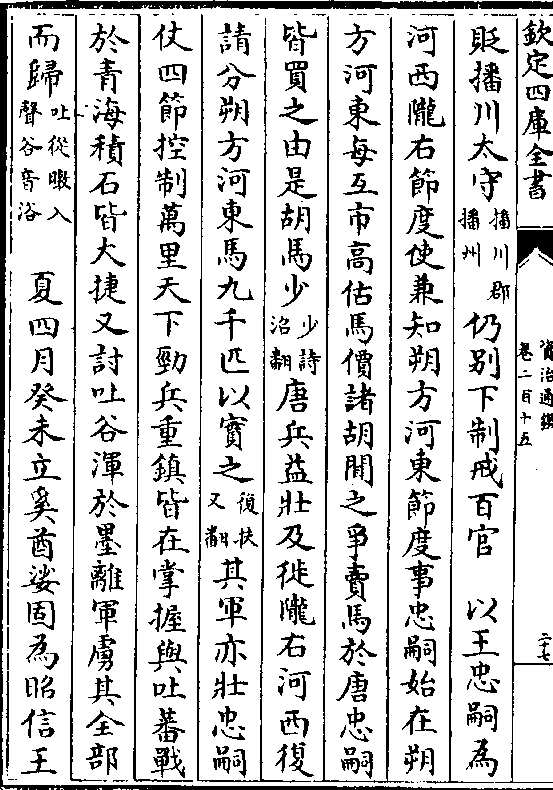 欽定四庫全書
資治通鑑
卷二百十五
二十七
貶播川太守播川郡播州仍別下制戒百官　以王忠嗣為
河西隴右節度使兼知朔方河東節度事忠嗣始在朔
方河東每互市高估馬價諸胡聞之爭賣馬於唐忠嗣
皆買之由是胡馬少少詩沼翻唐兵益壯及徙隴右河西復
請分朔方河東馬九千匹以實之復扶又翻其軍亦壯忠嗣
仗四節控制萬里天下勁兵重鎮皆在掌握與吐蕃戰
於青海積石皆大捷又討吐谷渾於墨離軍虜其全部
而歸吐從暾入聲谷音浴　夏四月癸未立奚酋娑固為昭信王